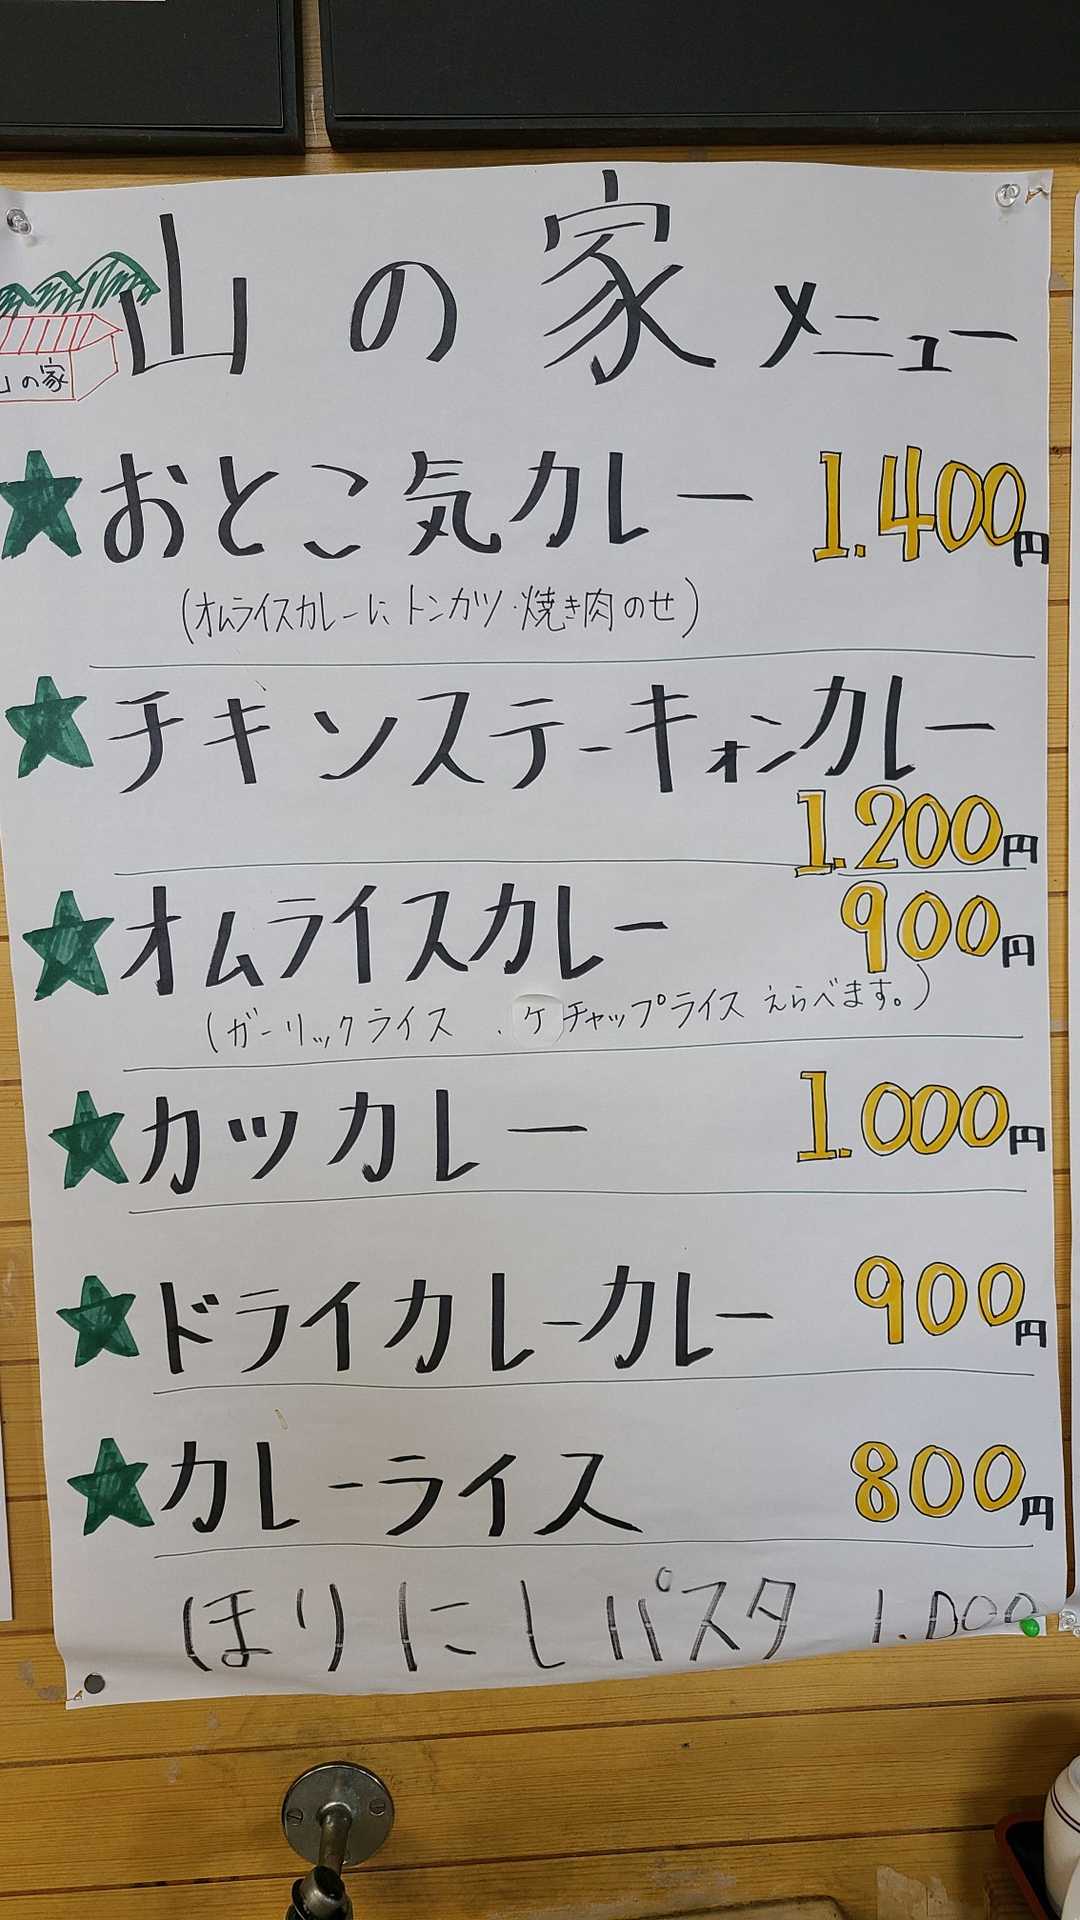 山の家メニュー
山の家
★おとこ気カレー 1.400円
(オムライスカレーに トンカツ・焼き肉のせ)
★チキンステーキォンカレー
1.200円
★オムライスカレー 900円
(ガーリックライス 、ケチャップライス えらべます。)
★カツカレー 1.000円
★ドライカレーカレー 900円
★カレーライス 800円
ほりにしパスタ 1.000